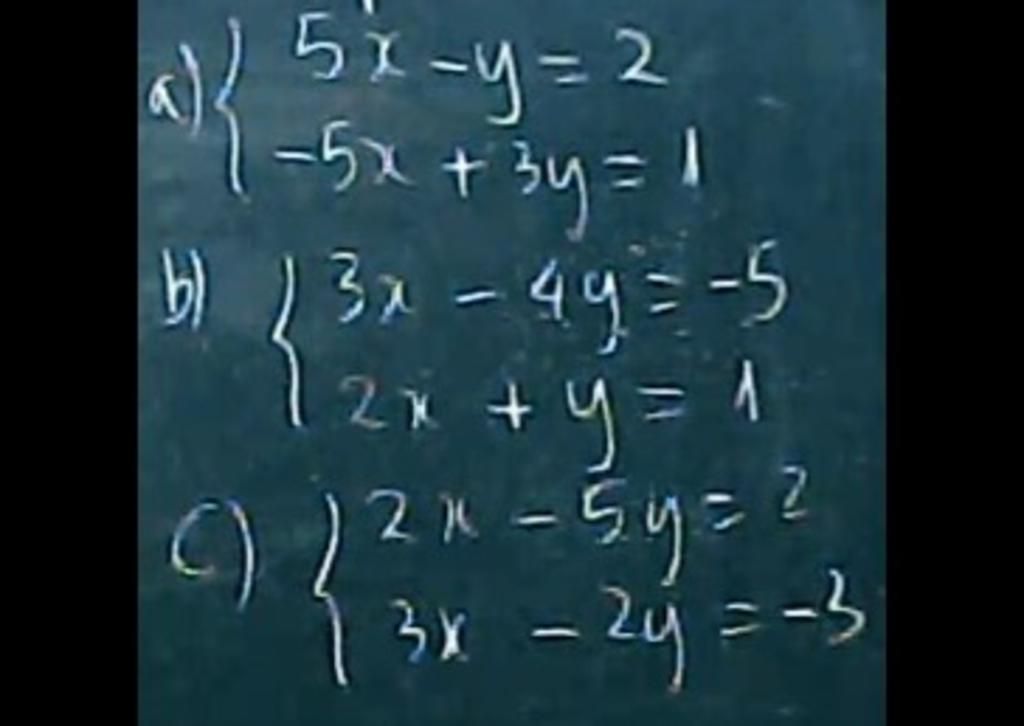 a) { 5x - y = 2
-5x + 3y = 1
b) { 3x - 4y = -5
2x + y = 1
c) { 2x - 5y = 2
3x - 2y = -3